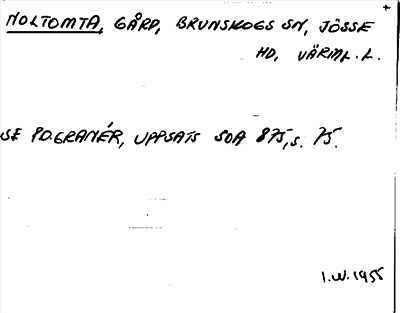 NOLTOMTA, GÅRD, BRUNSKOGS SN, JÖSSE
HD, VÄRML. L.
SE P.O.GRANÉR, UPPSATS SOA 875, s. 75.
I.W. 1955